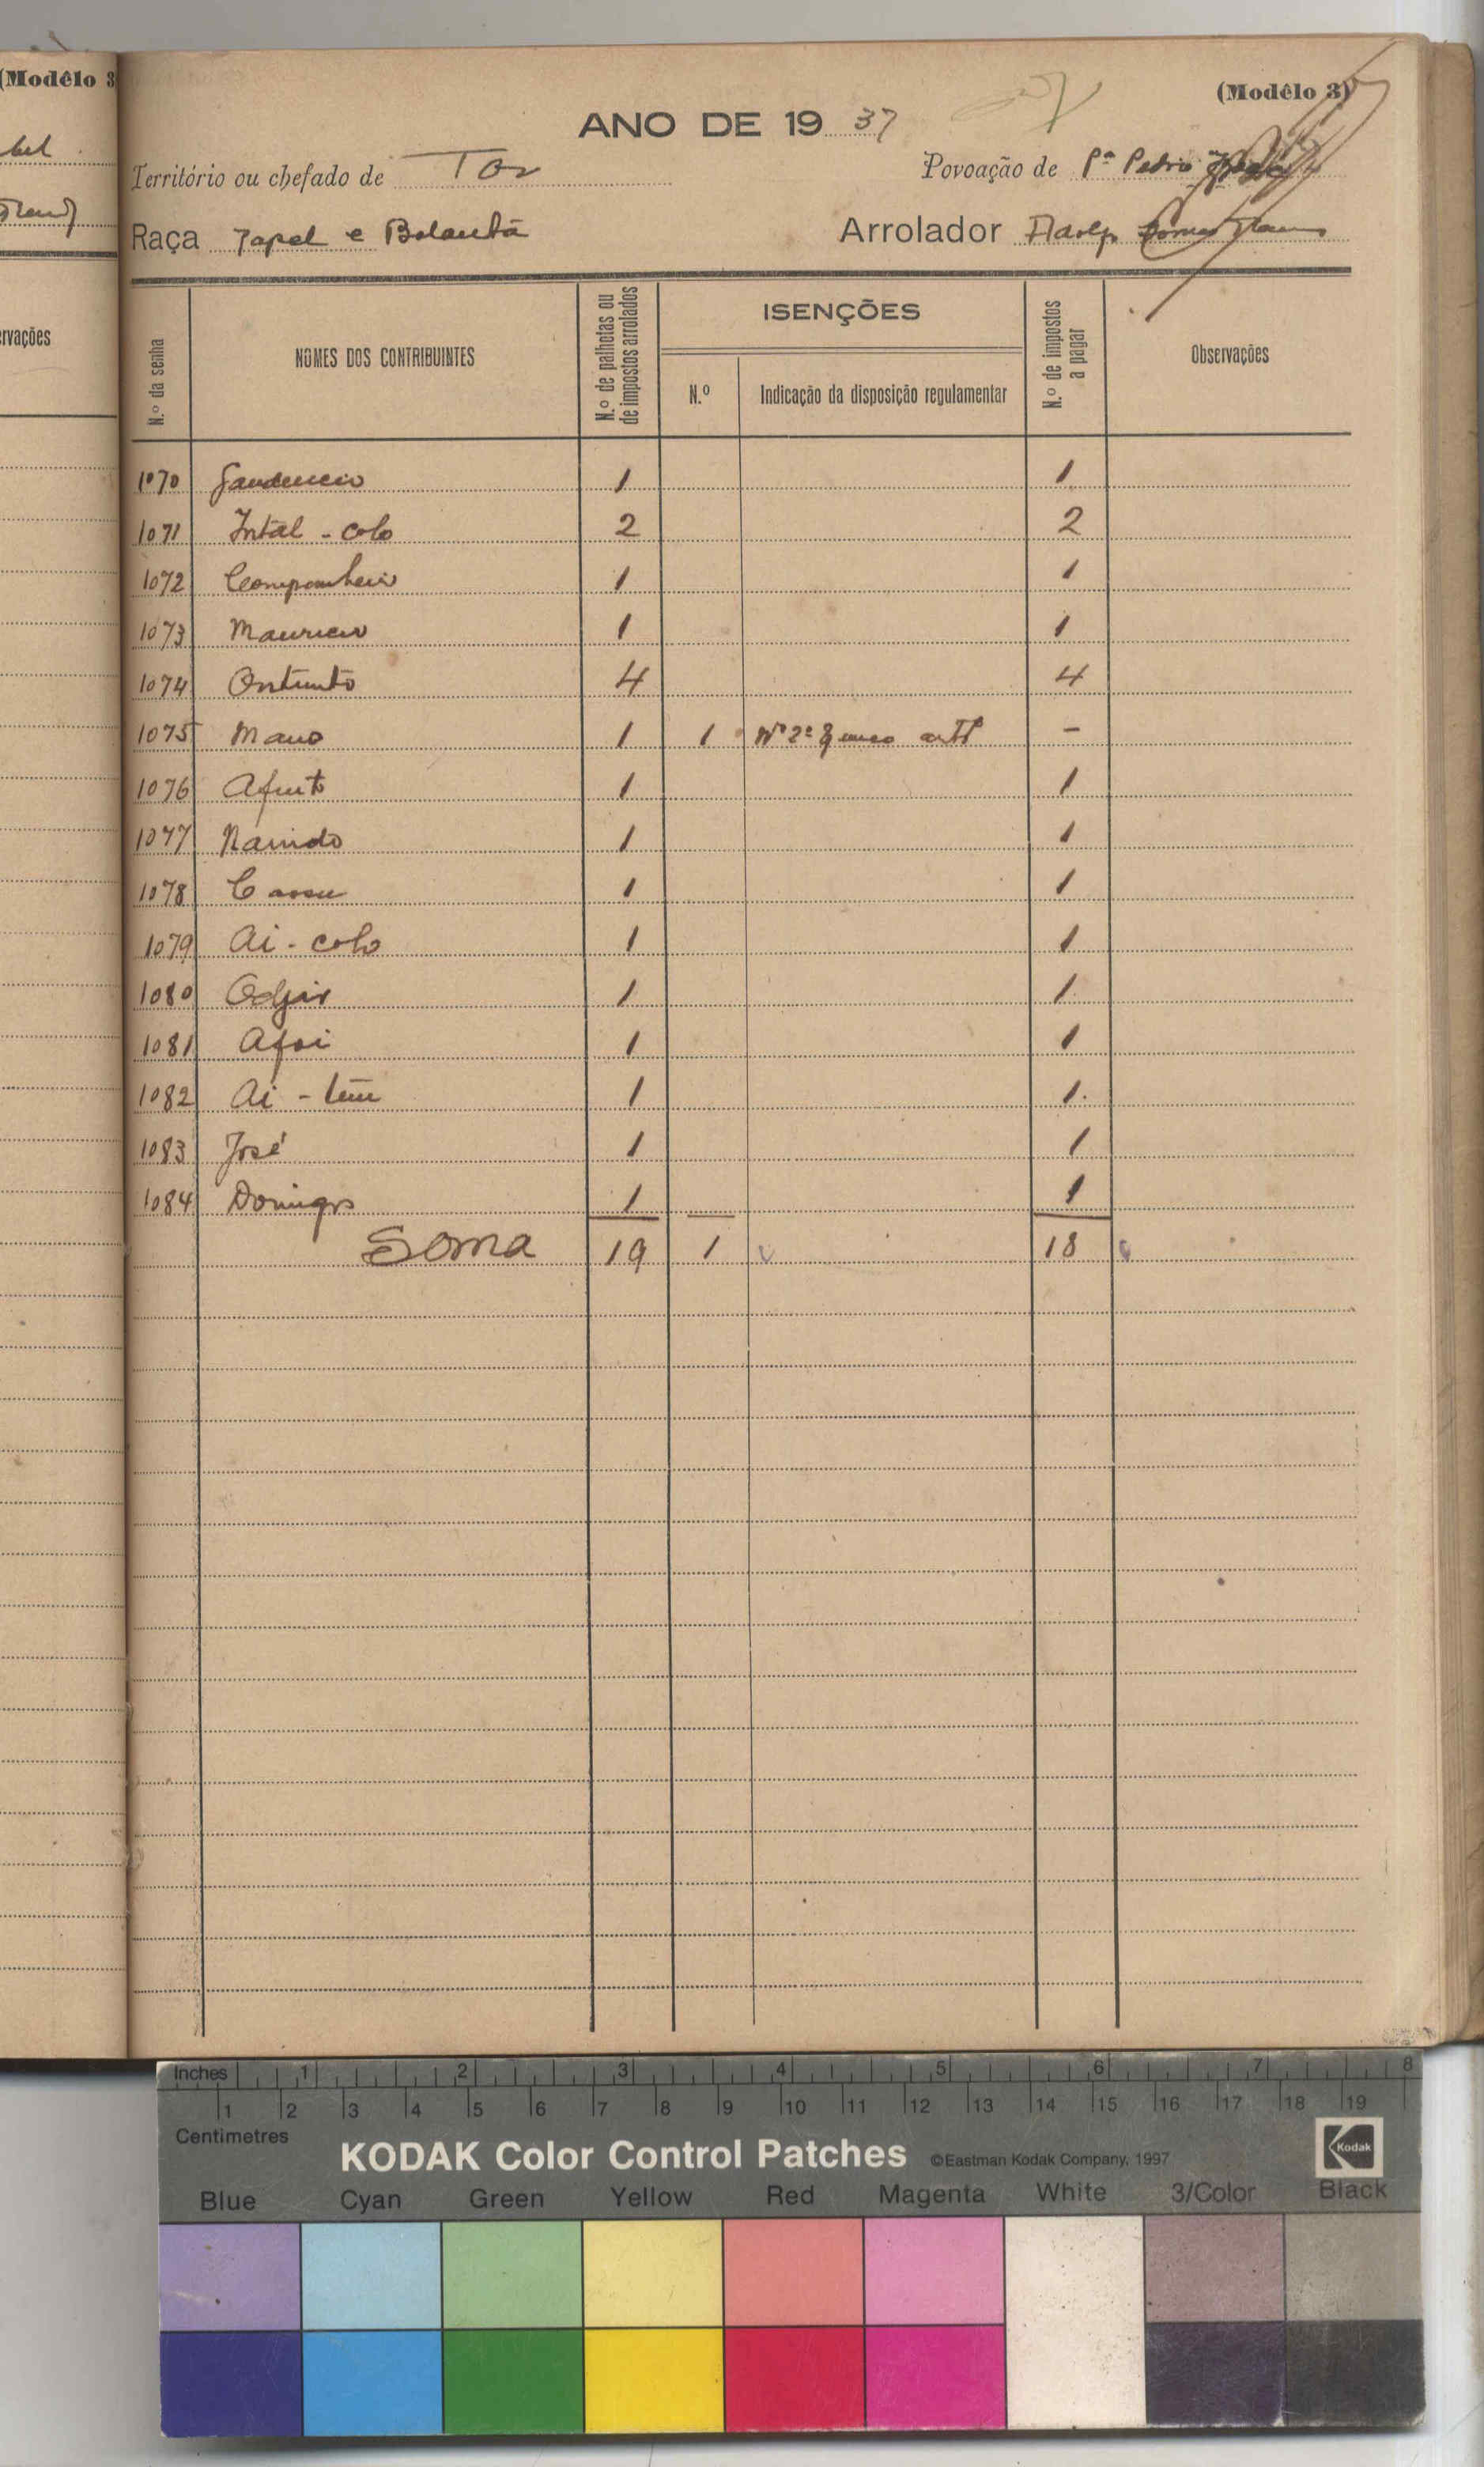 (Modêlo 3
(Modêlo 3)
ANO DE 19 37
Território ou chefado de Tor
Povoação de Pª Pedro
Raça Papel e Balanta
Arrolador Gomes
rvações
N.º da senha
NOMES DOS CONTRIBUINTES
N.º de palhotas ou de impostos arrolados
ISENÇÕES
N.º
Indicação da disposição regulamentar
N.º de impostos a pagar
Observações
1070 Gaudencio 1 1
1071 Intal - colo 2 2
1072 Companheiro 1 1
1073 Mauricio 1 1
1074 Ontunto 4 4
1075 Mano 1 1 Nº 2º -
1076 Afuto 1 1
1077 Naindo 1 1
1078 1 1
1079 Ai - colo 1 1
1080 Odjir 1 1
1081 Afoi 1 1
1082 Ai - 1 1
1083 José 1 1
1084 Domingos 1 1
Soma 19 1 18
Inches 1 2 3 4 5 6 7 8
1 2 3 4 5 6 7 8 9 10 11 12 13 14 15 16 17 18 19
Centimetres
KODAK Color Control Patches ©Eastman Kodak Company, 1997
Kodak
Blue Cyan Green Yellow Red Magenta White 3/Color Black